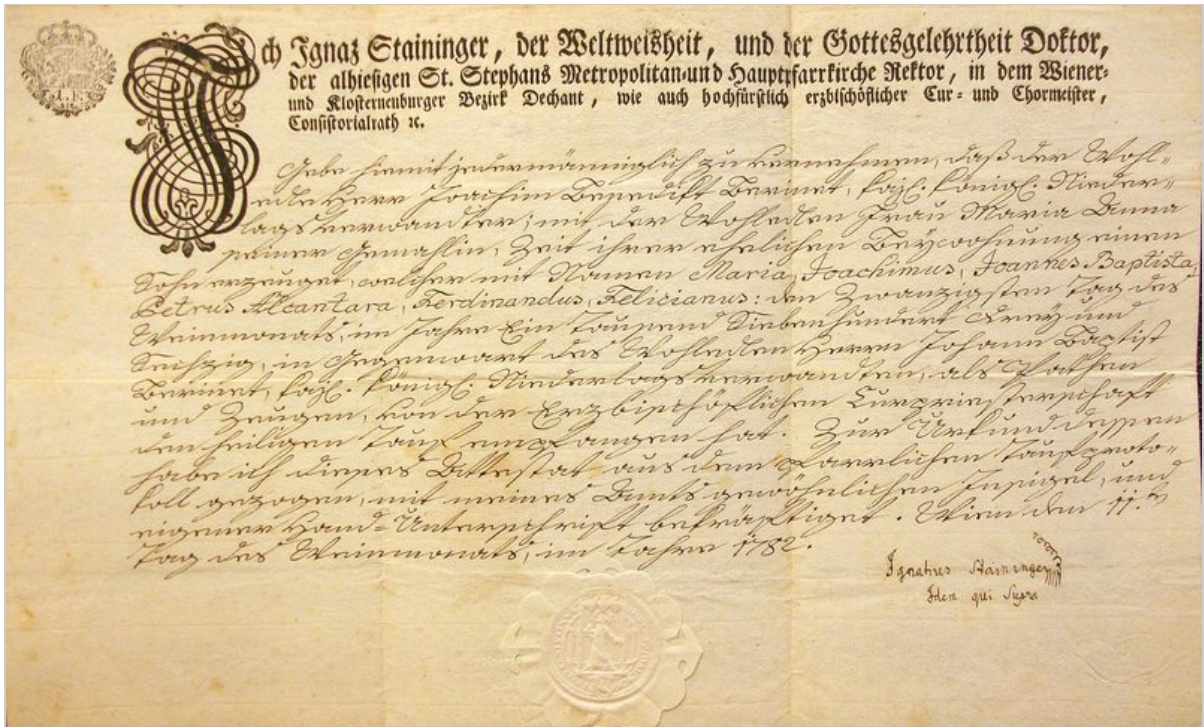 Ich Ignaz Staininger, der Weltweisheit, und der Gottesgelehrtheit Doktor,
der alhiesigen St. Stephans Metropolitan-und Hauptpfarrkirche Rektor, in dem Wiener-
und Klosterneuburger Bezirk Dechant, wie auch hochfürstlich erzbischöflicher Cur- und Chormeister,
Consistorialrath ꝛc.
Gebe hiemit jedermänniglich zu vernehmen, daß der Wohl-
edle Herr Joachim Benedikt Berinet, kais: königl: Nieder-
lagsverwandter; mit der Wohledlen Frau Maria Anna
seiner Gemahlin, Zeit ihrer ehelichen Beywohnung einen
Sohn erzeuget, welcher mit Namen Maria, Joachimus, Joannes Baptista,
Petrus Alcantara, Ferdinandus, Felicianus: den Zwanzigsten Tag des
Weinmonats, im Jahre Ein Tausend Siebenhundert Drey und
Sechzig, in Gegenwart des Wohledlen Herrn Johann Baptist
Berinet, kais: königl: Niederlagsverwandten, als Pathen
und Zeugen, von der Erzbischöflichen Curpriesterschaft
den heiligen Tauf empfangen hat. Zur Urkund dessen
habe ich dieses Attestat aus dem pfarrlichen Taufproto-
koll gezogen, mit meines Amts gewöhnlichen Insigel, und
eigener Hand-Unterschrift bekräftiget. Wien den 11.ten
Tag des Weinmonats, im Jahre 1782.
Ignatius Staininger
Idem qui Supra